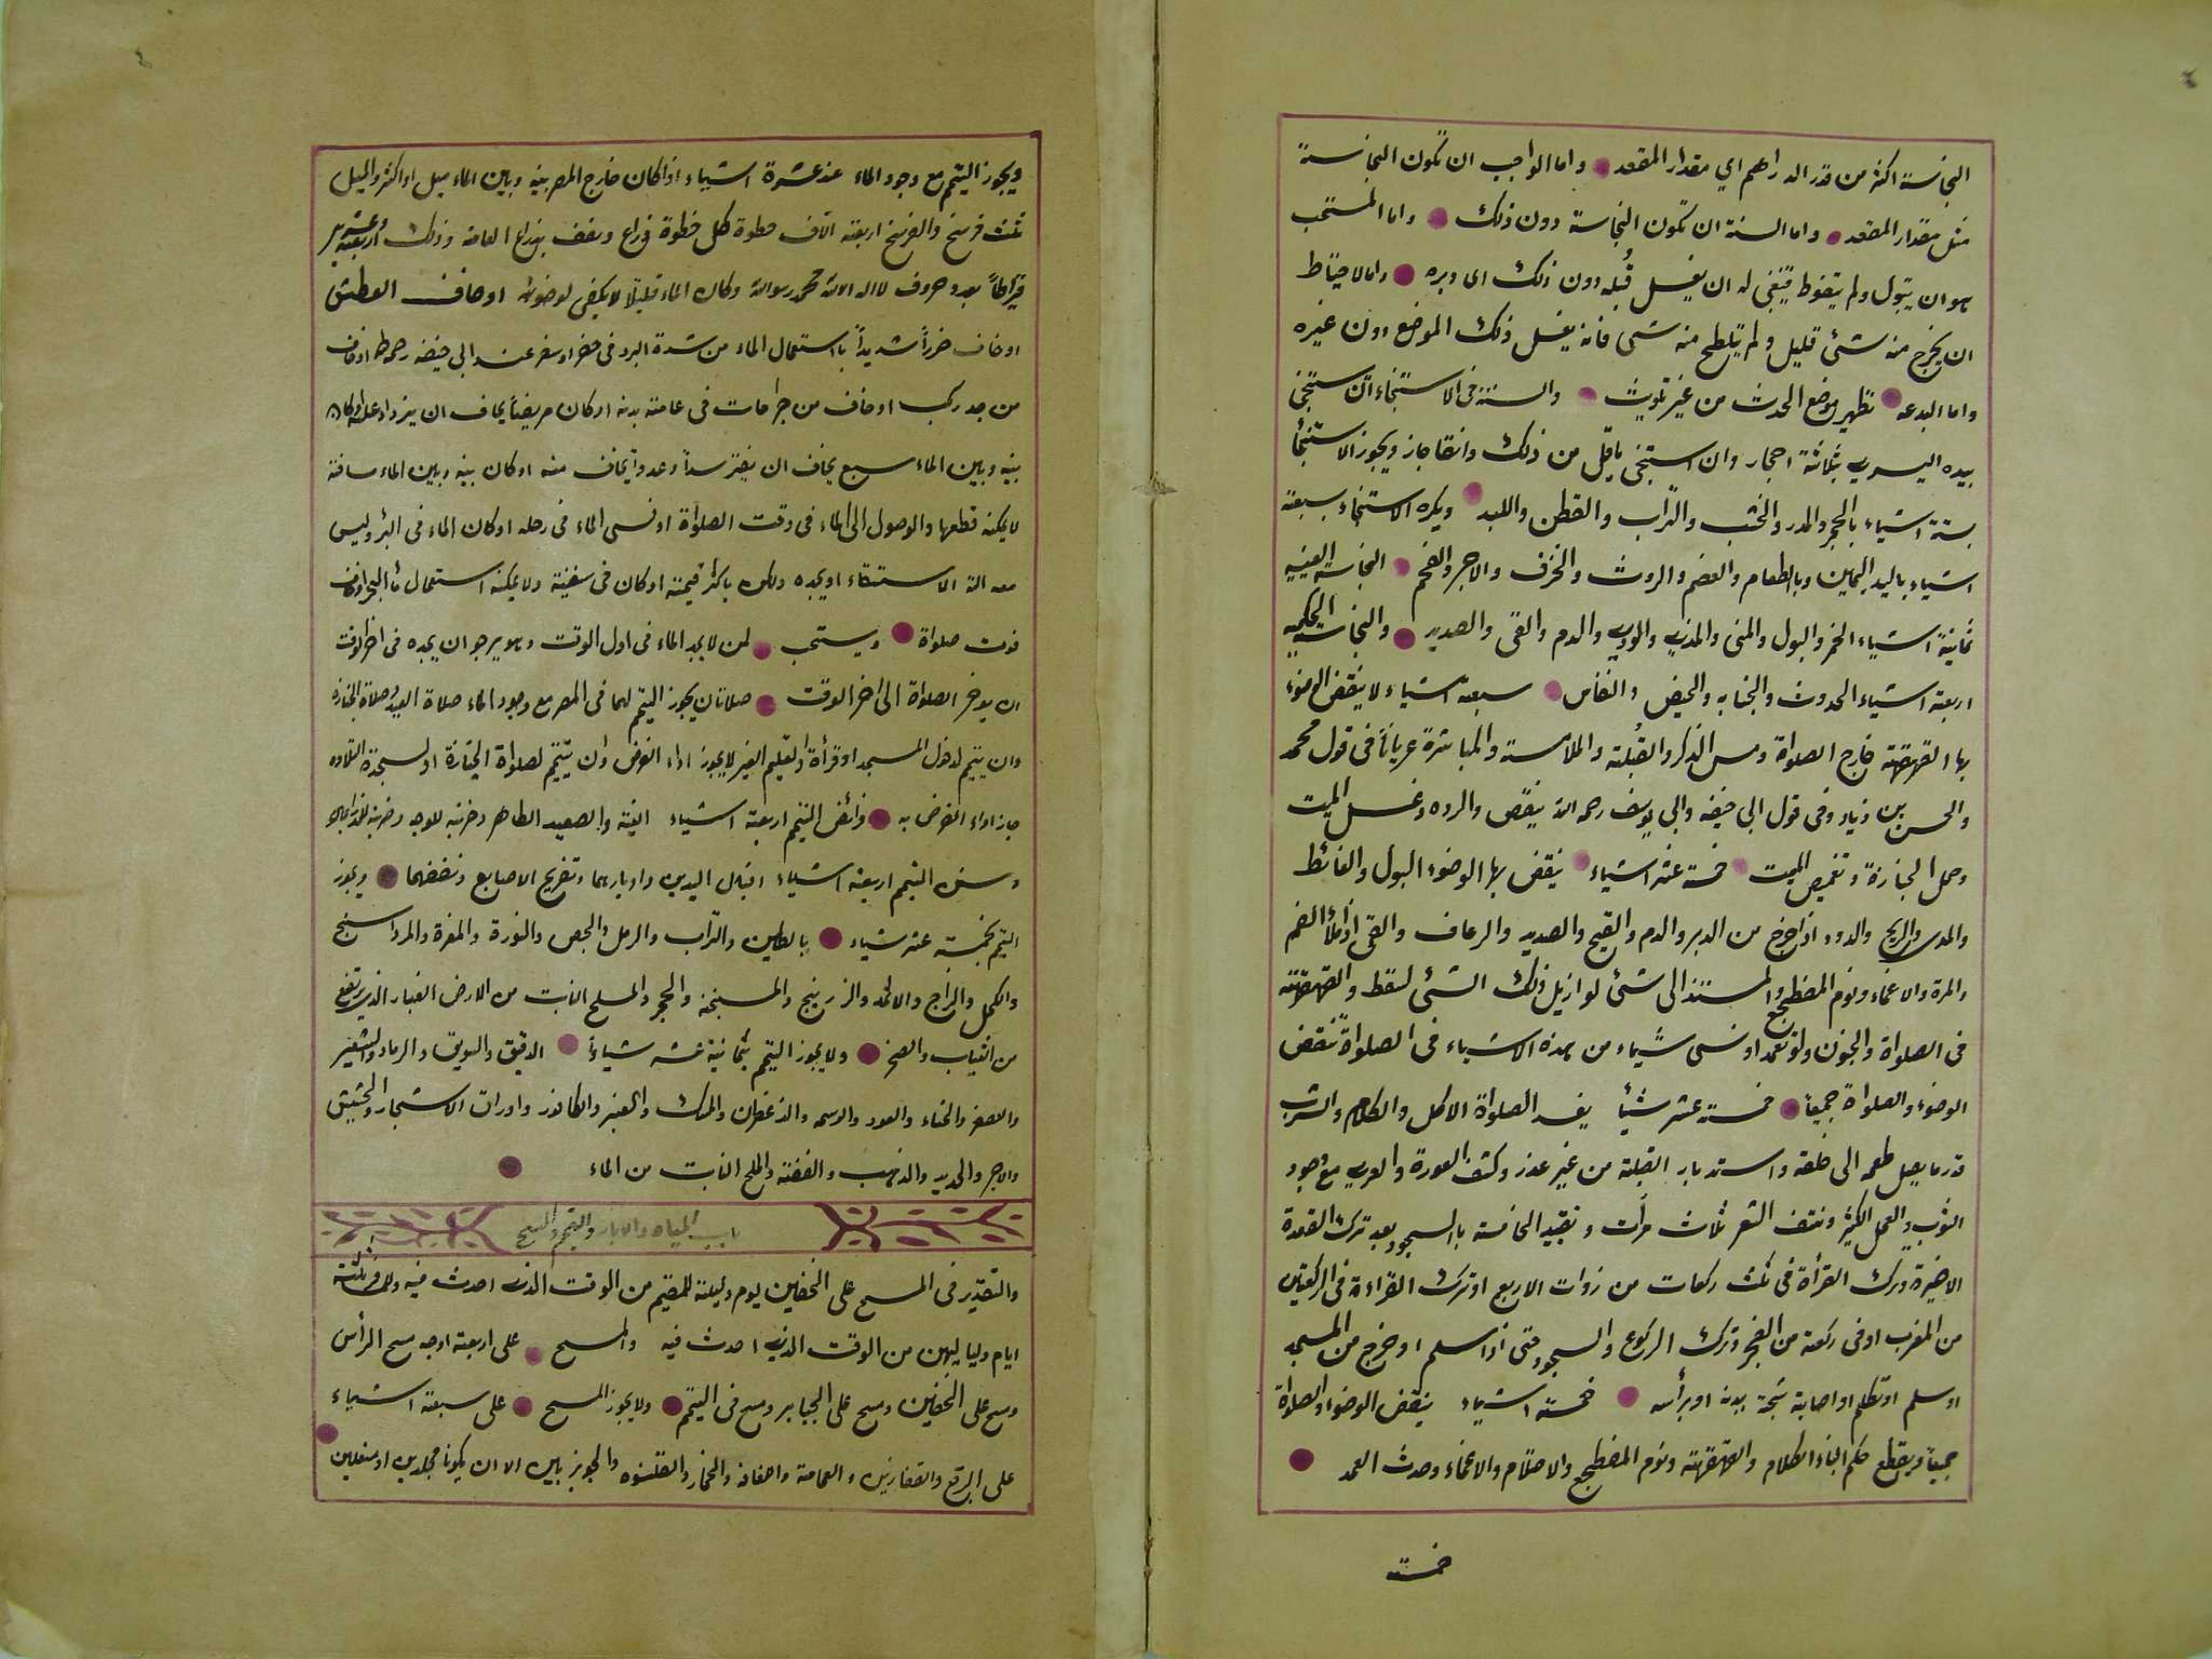 النجاسة اكثر من قدر الدراهم اي مقدار المقعد واما الواجب ان تكون النجاسة
مثل مقدار المقعد واما السنة ان تكون النجاسة دون ذلك واما المستحب
هو ان يتبول ولم يتغوط فينبغى له ان يغسل قُبله دون ذلك اى دبره واما الاحتياط
ان يخرج منه شئ قليل ولم يتلطح منه شى فانه يغسل ذلك الموضع دون غيره
واما البدعه تطهير موضع الحدث من غير تلويث والسنة فى الاستنجاء ان يستنجى
بيده اليسرى بثلاثة احجار وان استنجى باقل من ذلك وانقا جاز ويجوز الاستنجأ
بستة اشياء بالحجر والمدر والخشب والتراب والقطن واللبد ويكره الاستنجاء بسبعة
اشياء باليد اليمين وبالطعام والعضم والروث والخزف والاجر والفحم النجاسة العينيه
ثمانية اشياء الخمر والبول والمنى والمذى والودى والدم والقى والصديد والنجاسة الحكميه
اربعة اشياء الحدوث والجنابه والحيض والنفاس سبعة اشياء لا ينقض الوضوء
بها القهقهة خارج الصلواة ومس الذكر والقُبلة والملامسة والمباشرة عرياناً فى قول محمد
والحسن بن زياد وفى قول ابى حنيفه وابى يوسف رحمه الله ينقض والرده وغسل الميت
وحمل الجنازة وتغميض الميت خمسة عشر اشياء ينقض بها الوضوء البول والغائط
والمدى والريح والدود اذا خرج من الدبر والدم والقيح والصديد والرعاف والقى اذا ملأ الفم
والمرة والاغماء ونوم المضطجع والمستند الى شئ لو ازيل ذلك الشئ لسقط والقهقهة
فى الصلواة والجنون ولو تعمد او نسى شيماء من هذه الاشياء فى الصلواة نُقض
الوضوء والصلواة جميعاً خمسة عشر شيأ يفسد الصلواة الاكل والكلام والشرب
قدر ما يصل طعمه الى حلقه واستدبار القبلة من غير عذر وكشف العورة والعرى مع وجود
الثوب والعمل الكثير ونتف الشعر ثلاث مرأت وتقييد الخامسة باالسجود بعد ترك القعدة
الاخيرة وترك القرأة فى ثلث ركعات من زوات الاربع او ترك القراءة فى الركعتين
من المغرب او فى ركعة من الفجر وترك الركوع والسجود حتى اذا سلم او خرج من المسجد
او سلم او تكلم او اصابة شجة بدنه او برأسه خمسة اشياء ينقض الوضوء والصلواة
جميعاً ويقطع حكم البناء الكلام والقهقهة ونوم المضطجع والاحتلام والاغماء وحدث العمد
خمسة
ويجوز التيمم مع وجود الماء عند عشرة اشياء اذا كان خارج المصر بينه وبين الماء ميل او اكثر والميل
ثلث فرسخ والفرسخ اربعة الآف خطوة كل خطوة ذراع ونصف بذراع العامة وذلك اربعة وعشرين
قيراطاً بعدد حروف لا اله الا الله محمد رسول الله وكان الماء قليلاً لا يكفى لوضوئه او خاف العطش
او خاف ضرراً شديداً باستعمال الماء من شدة البرد فى حضر او سفر عند ابى حنيفه رحمه الله او خاف
من جدرى او خاف من جراحات فى عامة بدنه او كان مريضاً يخاف ان يزداد علته او كان
بينه وبين الماء سبع يخاف ان يفترسه أ وعدو أ يخاف منه او كان بينه وبين الماء مسافة
لا يمكنه قطعها والوصول الى الماء فى وقت الصلواة او نسى الماء فى رحله او كان الماء فى البئر وليس
معه الة الاستقاء او يجده ولكن باكثر قيمته او كان فى سفينة ولا يمكنه استعمال مأ البحر او خاف
فوت صلواة ويستحب لمن لا يجد الماء فى اول الوقت وهو يرجو ان يجده فى اخر الوقت
ان يوخر الصلواة الى اخر الوقت صلاتان يجوز التيمم لهما فى المصر مع وجود الماء صلاة العيد وصلاة الجنازه
وان يتيمم لدخول المسجد او قرأة او تعليم الغير لا يجوز اداء الفرض وان يتيمم لصلواة الجنازة او لسجدة التلاوه
جاز اداء الفرض به فرائض التيمم اربعة اشياء النية والصعيد الطاهر وضربة للوجه وضربة للذراعين
وسنن التيمم اربعة اشياء اقبال اليدين وادبارهما وتفريج الاصابع ونفضهما ويجوز
التيمم بخمسة عشر شياء بالطين والتراب والرمل والجص والنورة والمغرة والمرداسنج
والكحل والزاج والاثمد والزرنيخ والمسبخة والحجر والملح النابت من الارض الغبار الذى يرتفع
من الثياب والصخر ولا يجوز التيمم بثمانية عشر شياءاً الدقيق والسويق والرماد والشعير
والعصفر والحناء والعود والوسمه والذعفران والمسك والعنبر والكافور واوراق الاشجار والحشيش
والاجر والحديد والذهب والفضة والملح النابت من الماء
باب المياه والابار والتيمم والمسح
والتقدير فى المسح على الخفين يوم وليلة للمقيم من الوقت الذى احدث فيه وللمسافر ثلثة
ايام ولياليهن من الوقت الذى احدث فيه والمسح على اربعة اوجه مسح الرأس
ومسح على الخفين ومسح على الجبابر ومسح فى التيمم ولا يجوز المسح على سبعة اشياء
على البرقع والقفازين والعمامة واصفافه والخمار والقلنسوه والجوربين الا ان يكونا مجلدين او منعلين